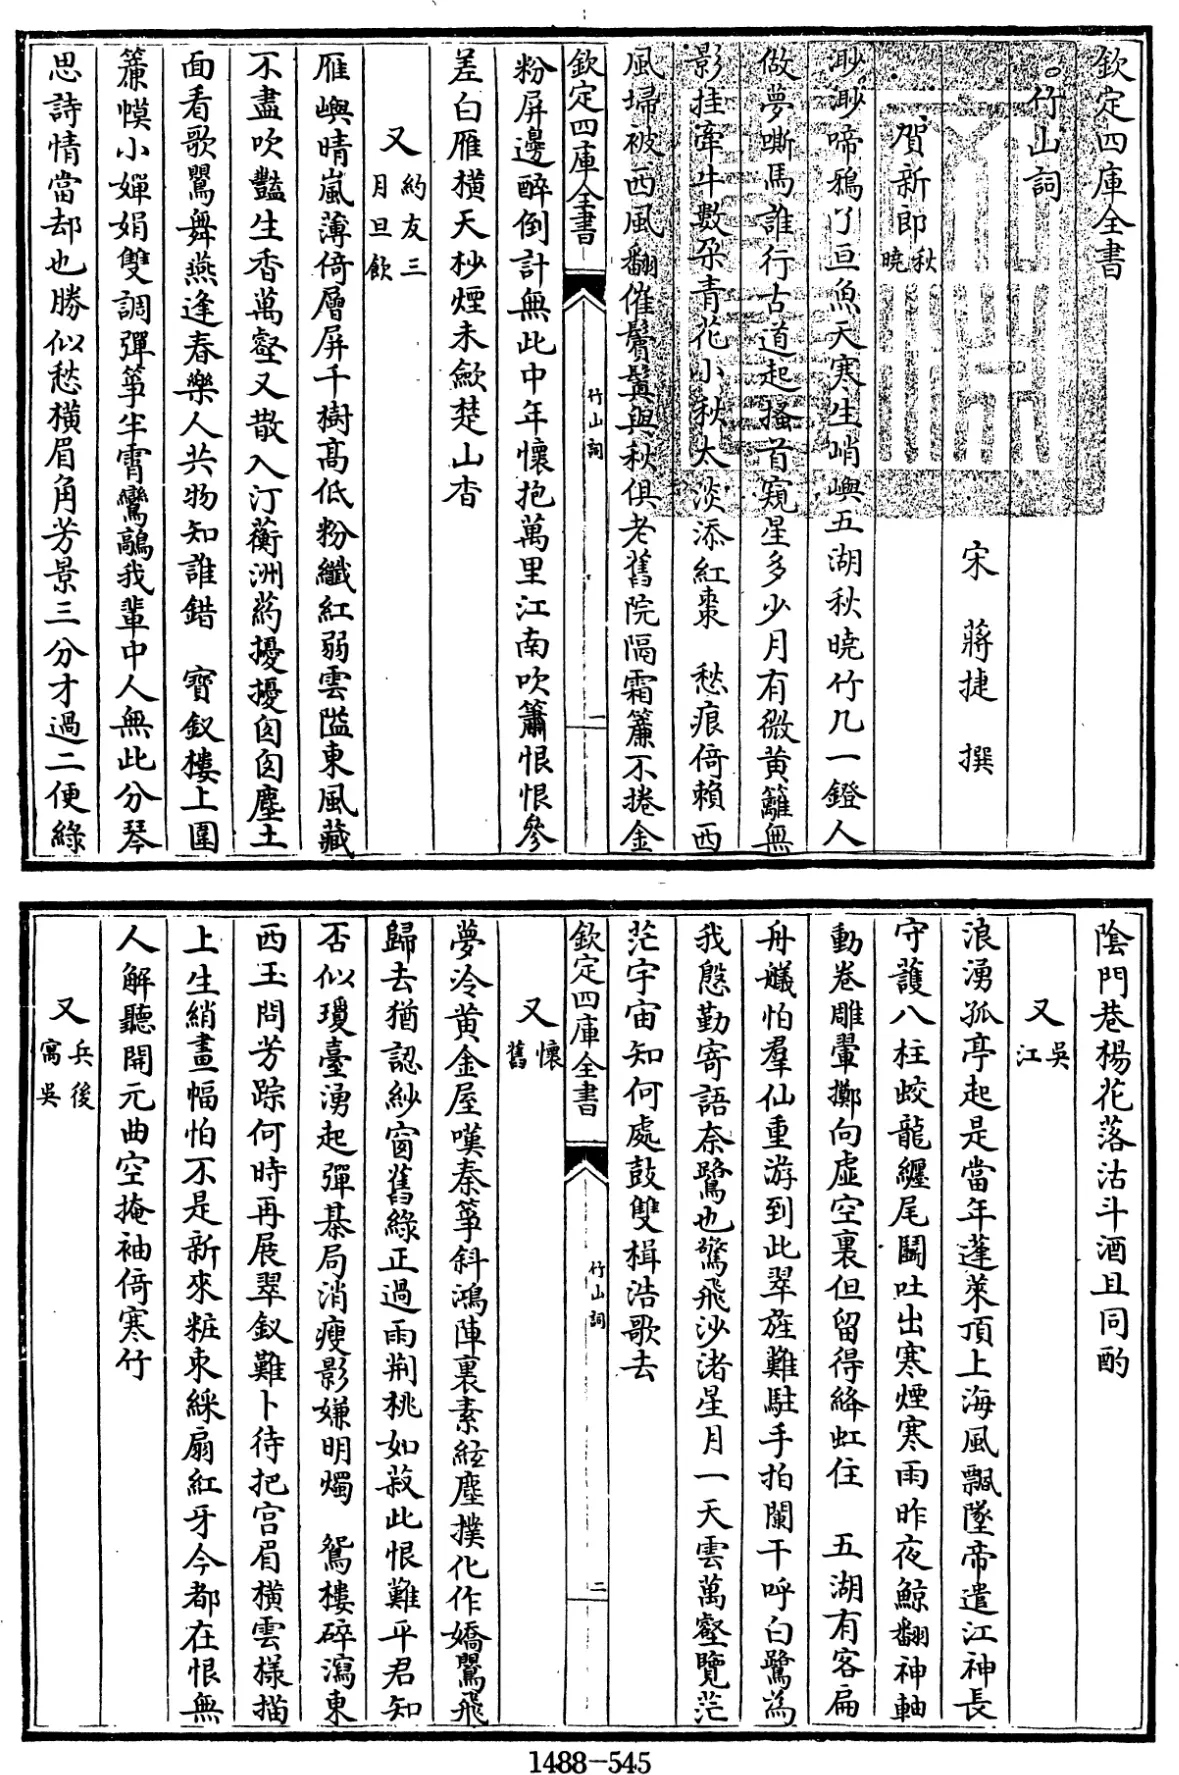 欽定四庫全書
竹山詞
宋 蔣捷 撰
賀新郎 秋曉
渺渺啼鴉了亘魚天寒生峭嶼五湖秋曉竹几一鐙人
做夢嘶馬誰行古道起搔首窺星多少月有微黃籬無
影挂牽牛數朶青花小秋太淡添紅棗 愁痕倚賴西
風埽被西風翻催鬢鬒與秋俱老舊院隔霜簾不捲金
欽定四庫全書 竹山詞 一
粉屏邊醉倒計無此中年懷抱萬里江南吹簫恨恨參
差白雁橫天杪煙未歛楚山杳
又 約友三月旦飲
雁嶼晴嵐薄倚層屏千樹高低粉纖紅弱雲隘東風藏
不盡吹豔生香萬壑又散入汀蘅洲葯擾擾匆匆塵土
面看歌鶯舞燕逢春樂人共物知誰錯 寶釵樓上圍
簾幙小嬋娟雙調彈箏半霄鸞鶴我輩中人無此分琴
思詩情當却也勝似愁橫眉角芳景三分才過二便綠
陰門巷楊花落沽斗酒且同酌
又 吳江
浪湧孤亭起是當年蓬萊頂上海風飄墜帝遣江神長
守護八柱蛟龍纏尾鬭吐出寒煙寒雨昨夜鯨翻神軸
動卷雕翬擲向虛空裏但留得絳虹住 五湖有客扁
舟艤怕羣仙重游到此翠旌難駐手拍闌干呼白鷺為
我慇勤寄語奈鷺也驚飛沙渚星月一天雲萬壑覽茫
茫宇宙知何處鼓雙楫浩歌去
欽定四庫全書 竹山詞 二
又 懷舊
夢冷黃金屋嘆秦箏斜鴻陣裏素絃塵撲化作嬌鶯飛
歸去猶認紗窗舊綠正過雨荆桃如菽此恨難平君知
否似瓊臺湧起彈棊局消瘦影嫌明燭 鴛樓碎瀉東
西玉問芳踪何時再展翠釵難卜待把宮眉橫雲樣描
上生綃畫幅怕不是新來粧束綵扇紅牙今都在恨無
人解聽開元曲空掩袖倚寒竹
又 兵後寓吳
1488-545